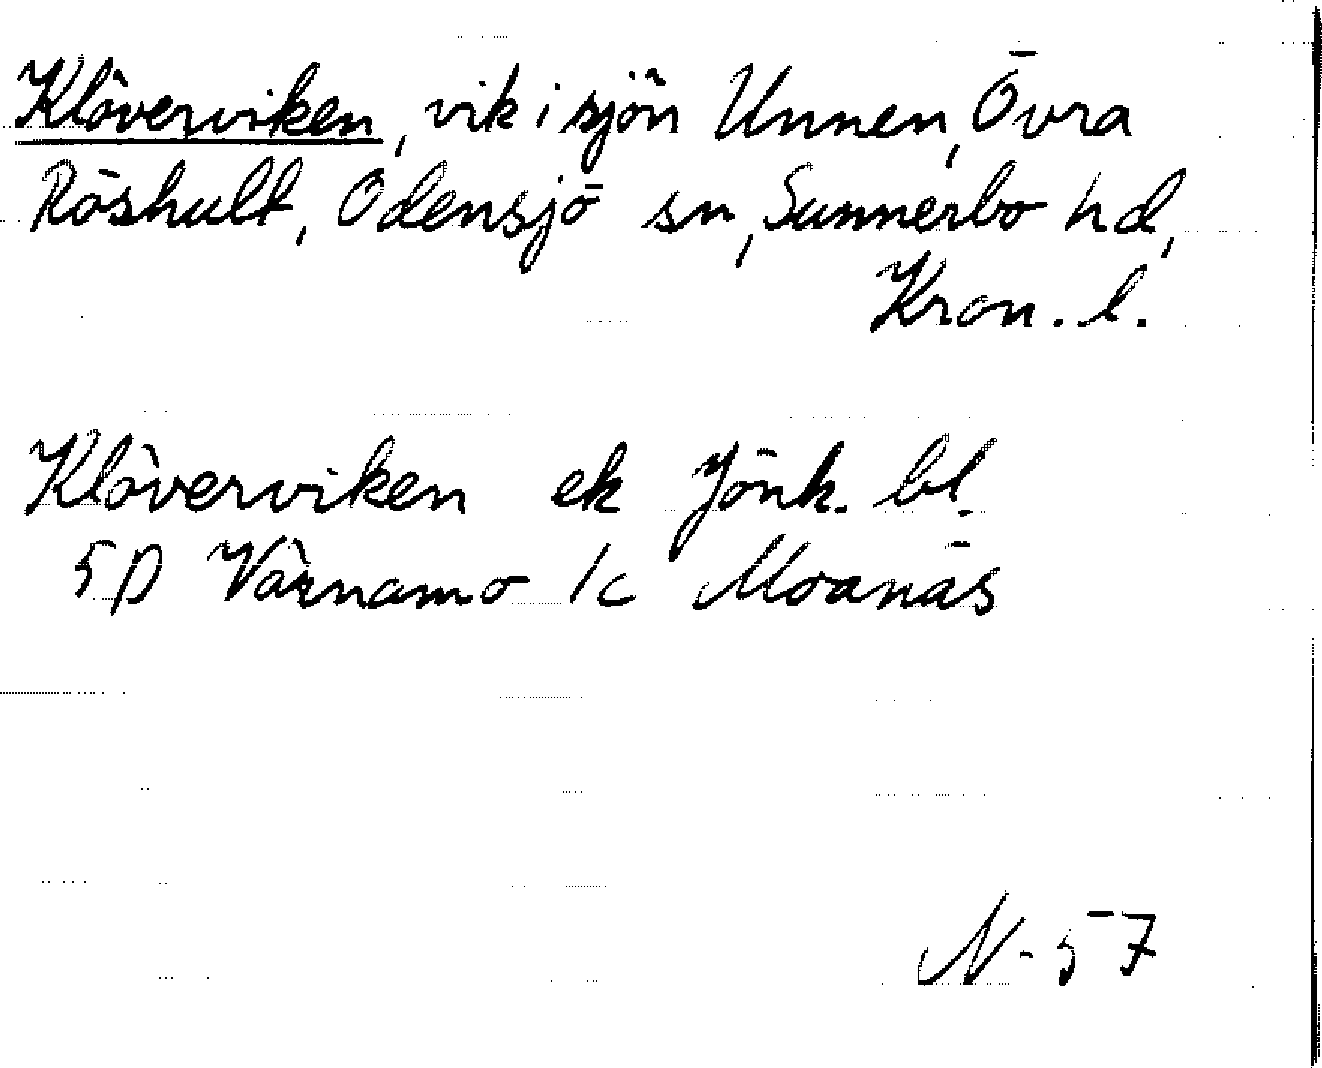 Klöverviken, vik i sjön Unnen, Övra
Röshult, Odensjö sn, Sunnerbo hd,
Kron. l.
Klöverviken ek Jönk. bl.
5D Värnamo 1c Moanäs
N-57